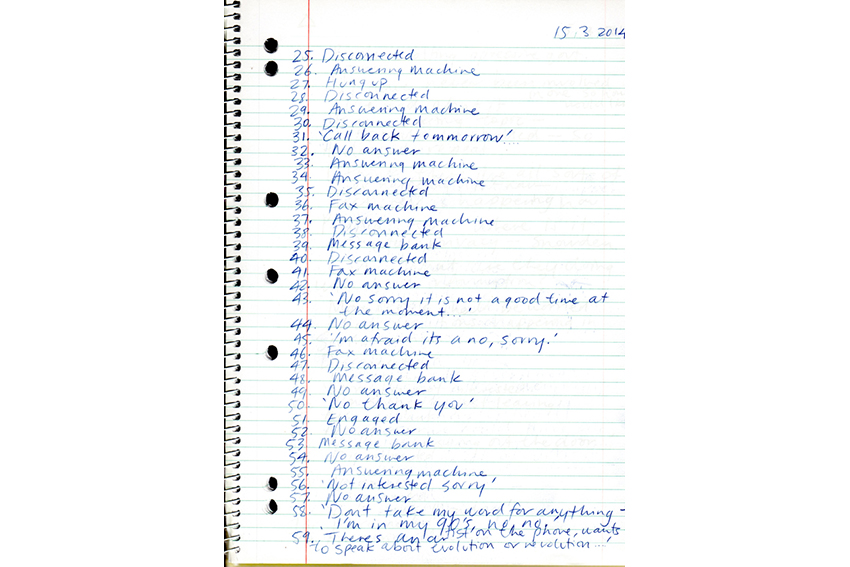 15 3 2014
25. Disconnected
26. Answering machine
27. Hung up
28. Disconnected
29. Answering machine
30. Disconnected
31. 'Call back tommorrow'....
32. No answer
33. Answering machine
34. Answering machine
35. Disconnected
36. Fax machine
37. Answering machine
38. Disconnected
39. Message bank
40. Disconnected
41. Fax machine
42. No answer
43. 'No sorry it is not a good time at
the moment...'
44. No answer
45. 'I'm afraid its a no, sorry.'
46. Fax machine
47. Disconnected
48. Message bank
49. No answer
50. 'No thank you'
51. Engaged
52. No answer
53. Message bank
54. No answer
55. Answering machine
56. 'Not interested sorry'
57. No answer
58. 'Dont take my word for anything -
I'm in my 90's, no no.'
59. 'Theres an artist on the phone, wants
to speak about evolution or revolution...'